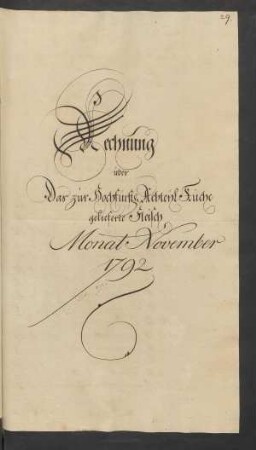 29.
Rechnung
über
Das zur Hochfürstl. Küche
gelieferte Fleisch
Monat November
1792